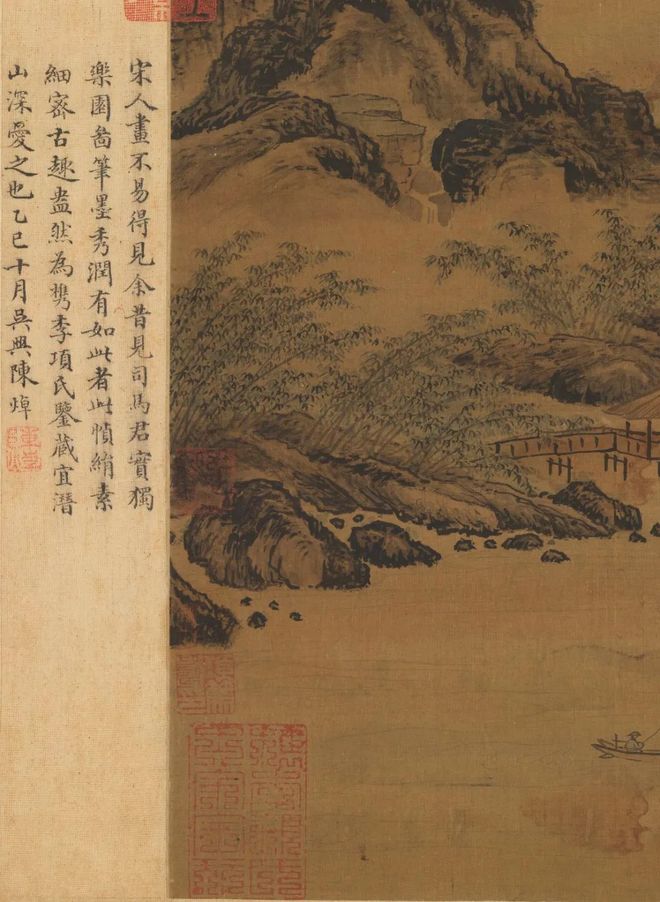 宋人畫不易得見余昔見司馬君實獨
樂園啚筆墨秀潤有如此者此幀絹素
細密古趣盎然為檇李項氏鑒藏宜潛
山深愛之也乙巳十月吳興陳焯